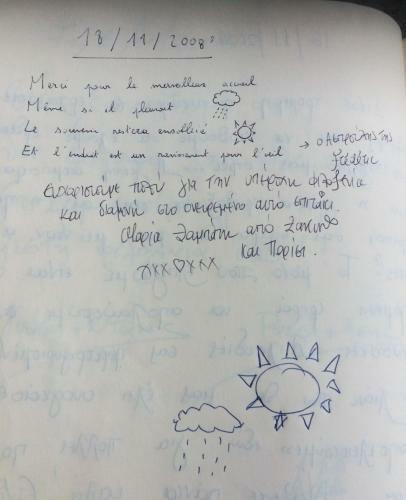 18/11/2008
Merci pour le merveilleux accueil
Même si il pleuvait
Le souvenir restera ensoleillé
Et l'endroit est un ravissement pour l'œil → ο Αστερισμός της
Ευχαριστούμε πολύ για την υπέροχη φιλοξενία
και διαμονή στο ονειρεμένο αυτό σπιτάκι.
Μαρία από Ζάκυνθο
και Παρίσι.
xxx♡xxx